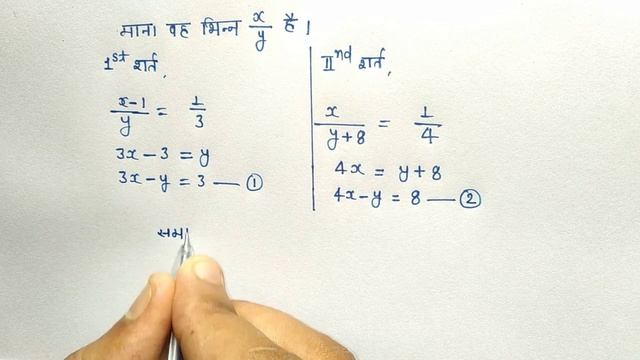 माना वह भिन्न x/y है।
1st शर्त,
x-1/y = 1/3
3x-3 = y
3x-y = 3 — ①
IInd शर्त,
x/y+8 = 1/4
4x = y+8
4x-y = 8 — ②
समा